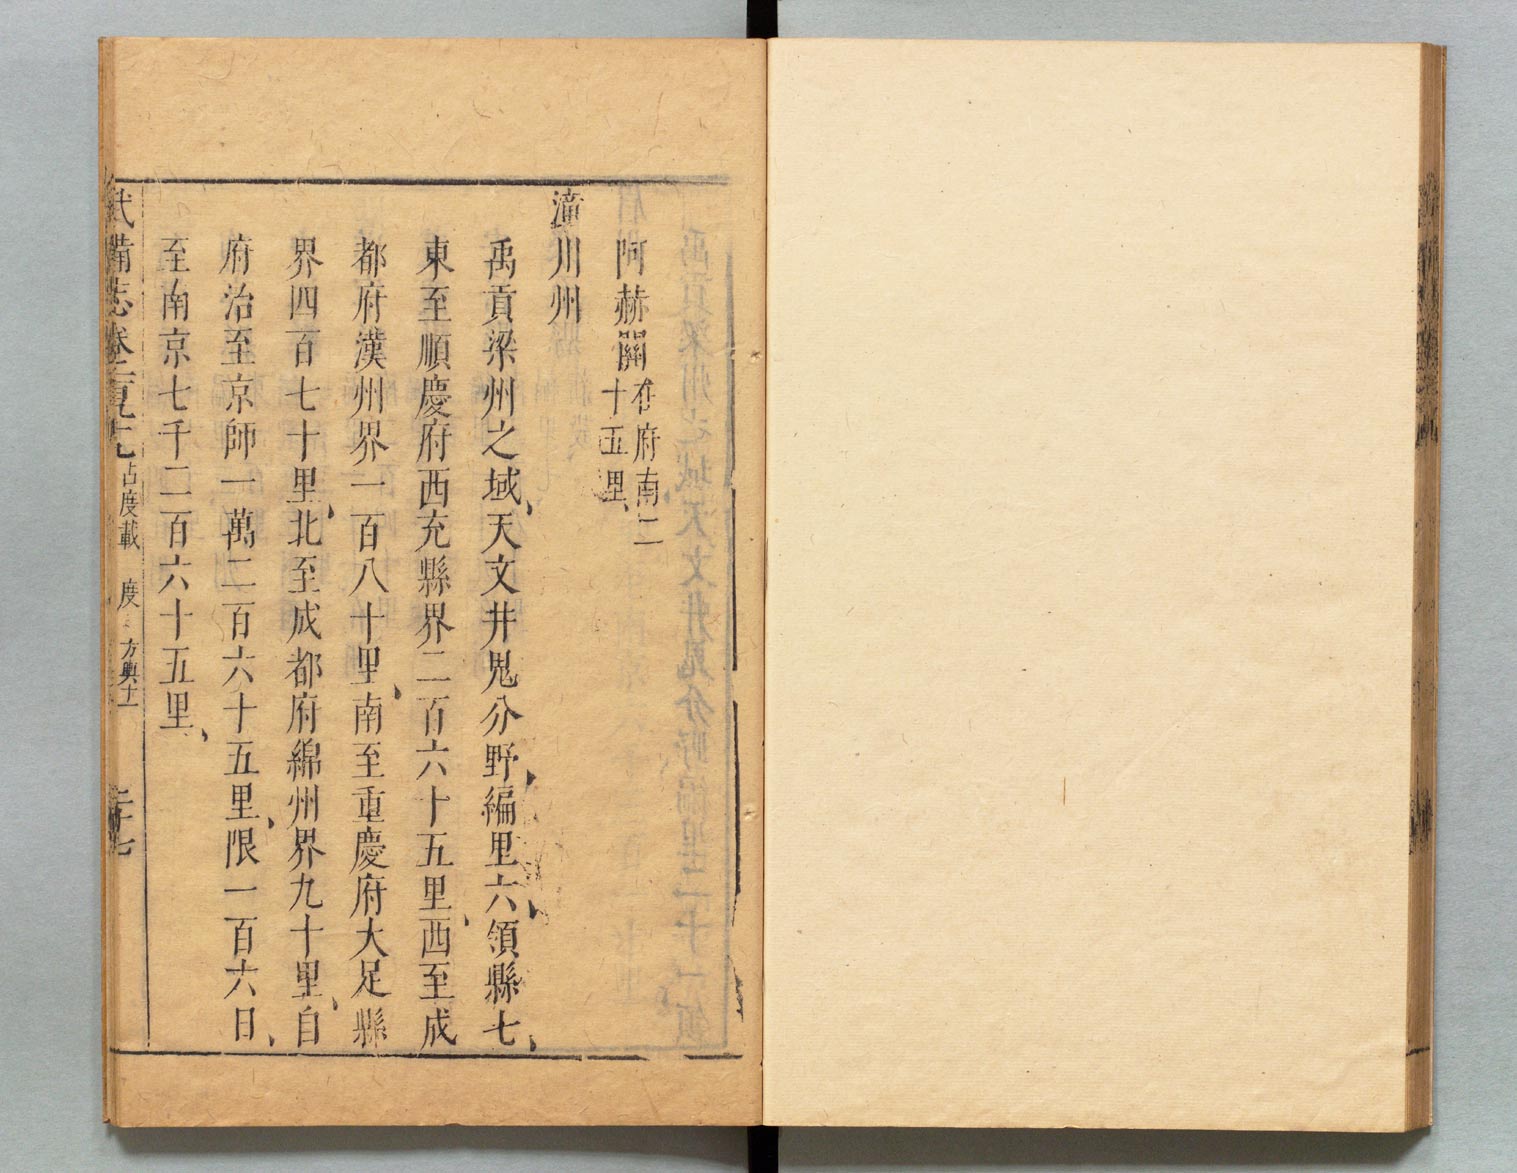 阿赫關在府南二
十五里、
潼川州
禹貢梁州之域、天文井鬼分野、編里六、領縣七、
東至順慶府西充縣界二百六十五里、西至成
都府漢州界一百八十里、南至重慶府大足縣
界四百七十里、北至成都府綿州界九十里、自
府治至京師一萬二百六十五里、限一百六日、
至南京七千二百六十五里、
武備志卷 占度載 度 方輿十一 二十七